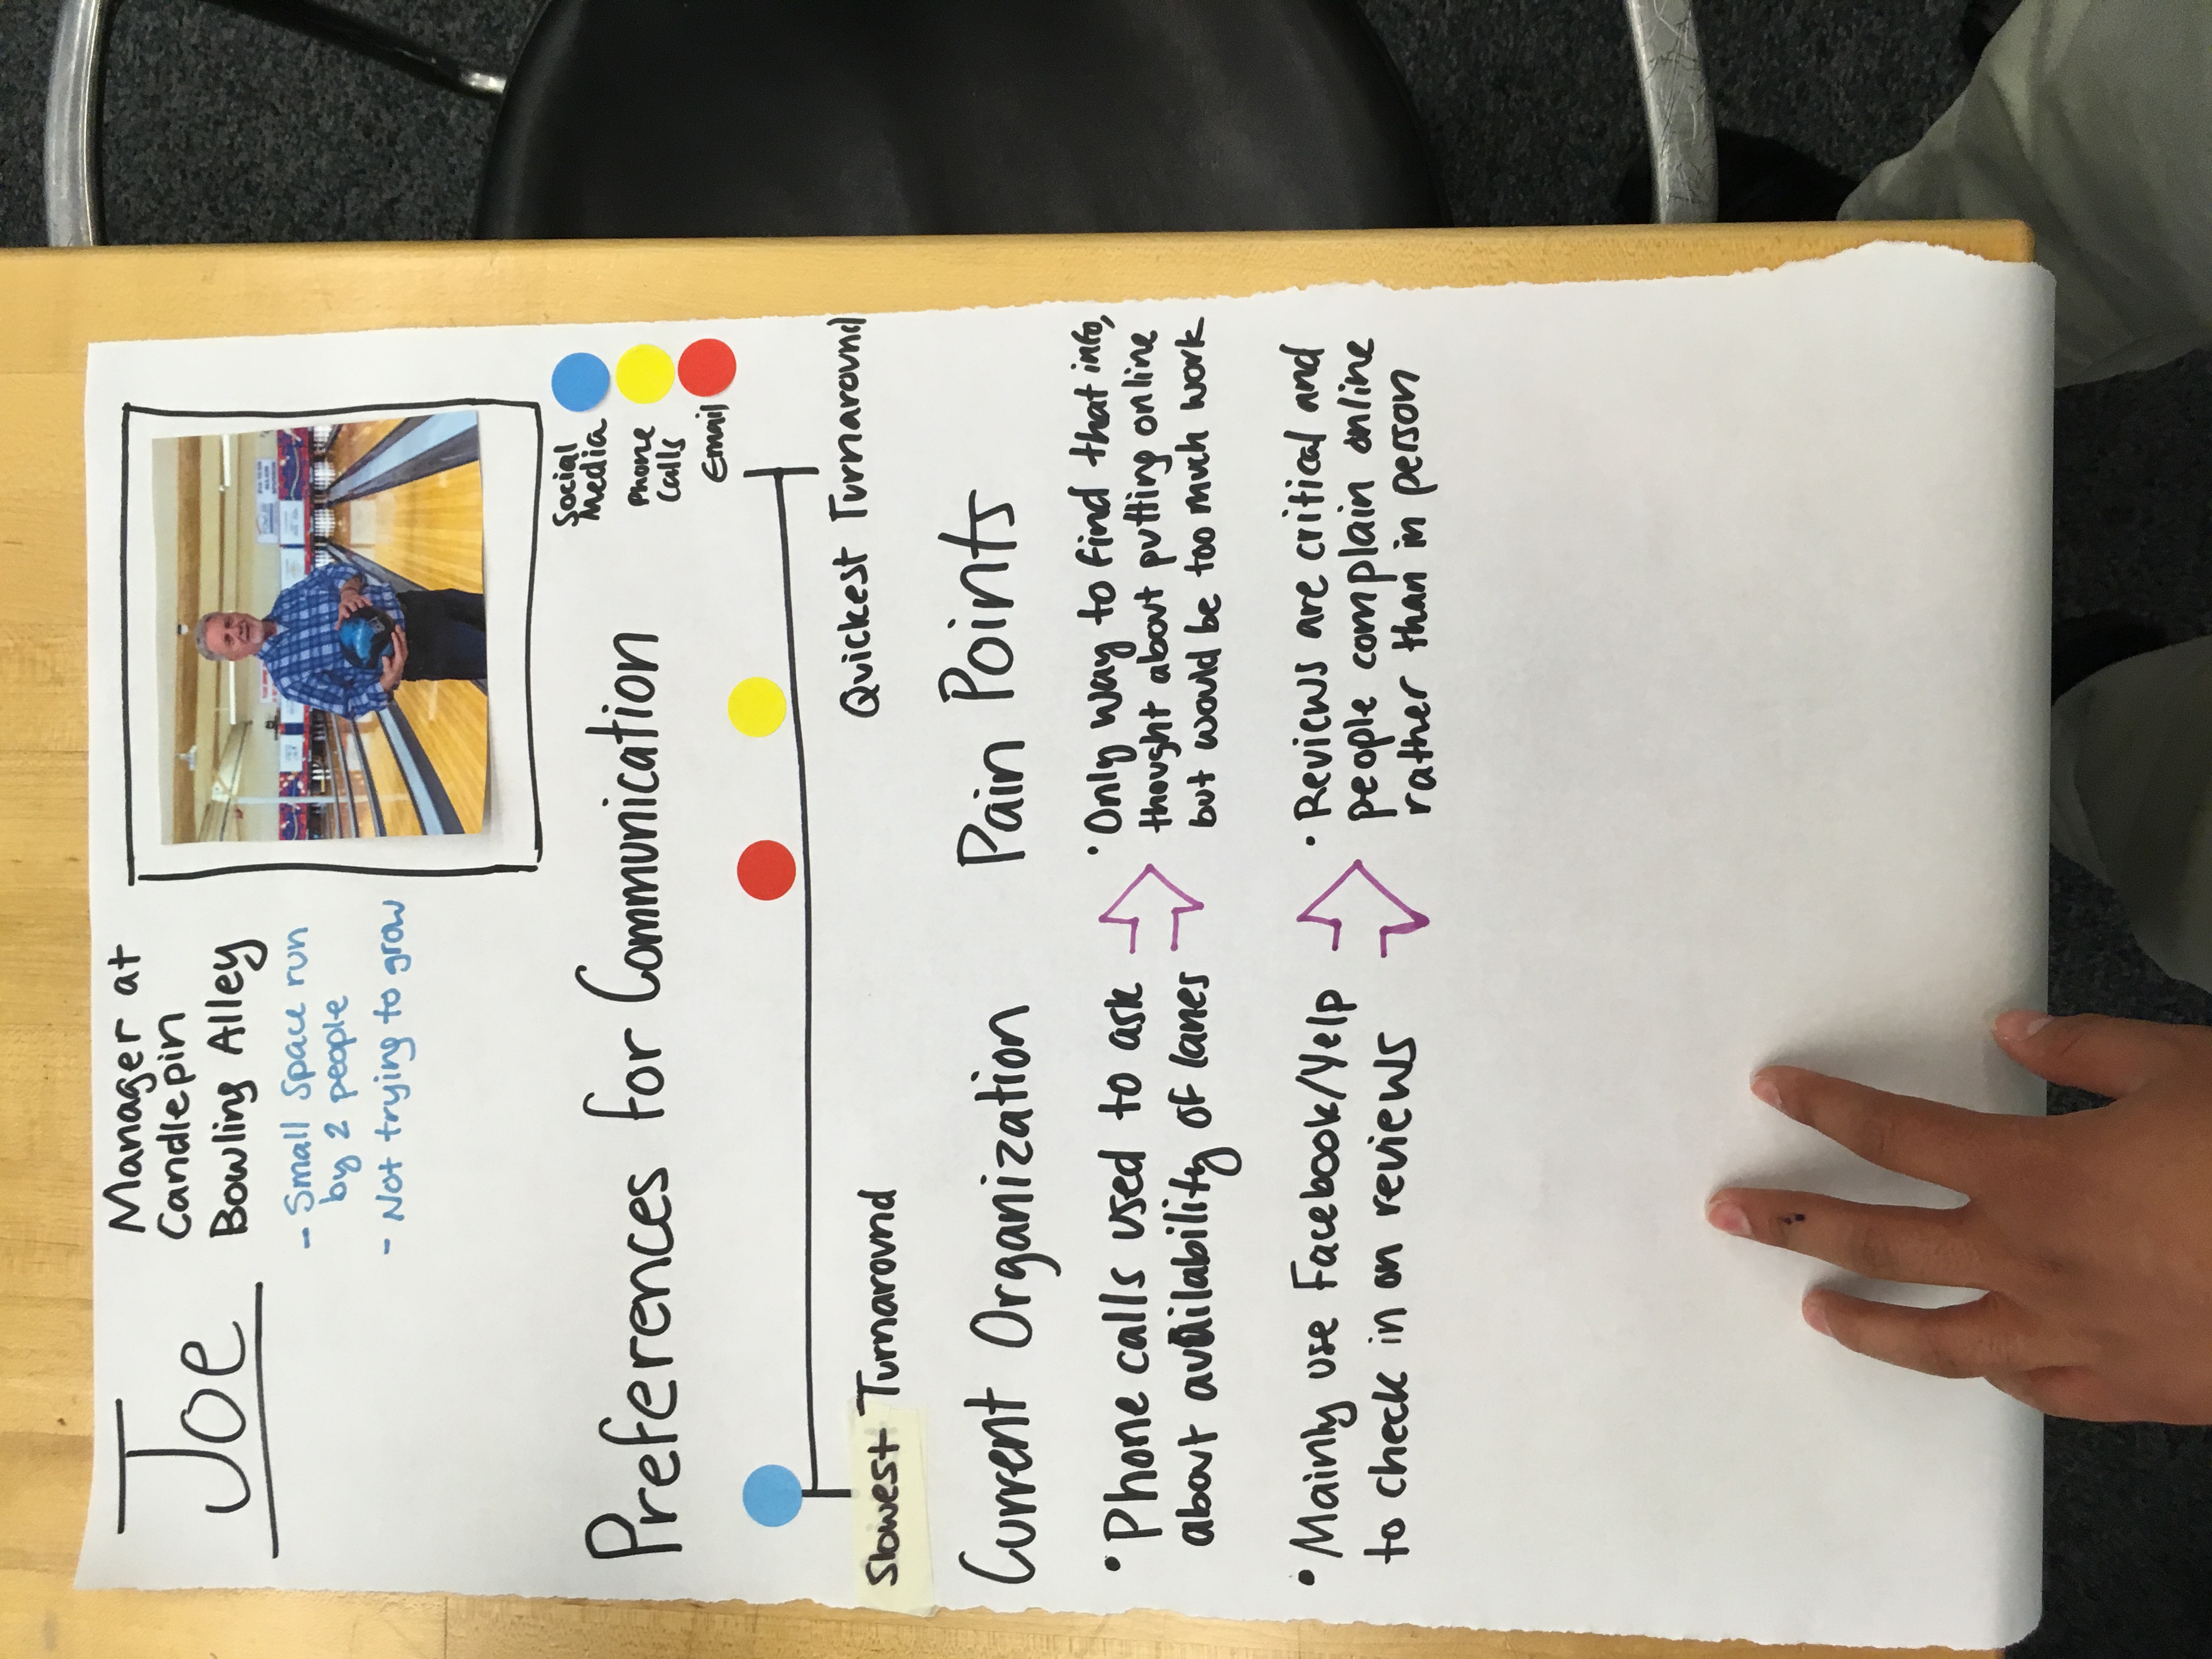 Joe
Manager at
Candlepin
Bowling Alley
- Small space run
by 2 people
- Not trying to grow
Social
Media
Phone
Calls
Email
Preferences for Communication
Slowest Turnaround
Quickest Turnaround
Current Organization
• Phone calls used to ask
about availability of lanes
• Mainly use Facebook/Yelp
to check in on reviews
Pain Points
• Only way to find that info,
thought about putting online
but would be too much work
• Reviews are critical and
people complain online
rather than in person